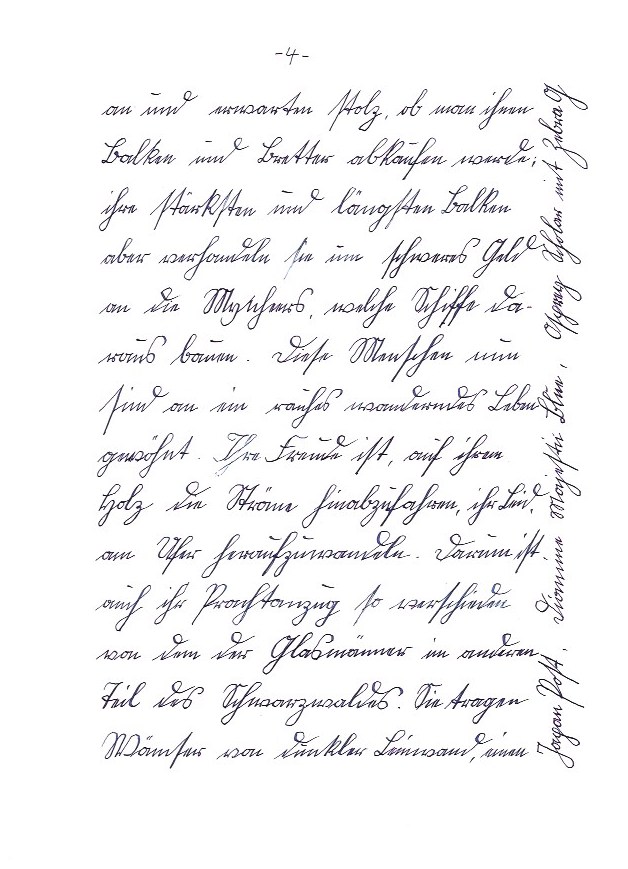 -4-
an und erwarten stolz, ob man ihnen
Balken und Bretter abkaufen werde;
ihre stärksten und längsten Balken
aber verhandeln sie um schweres Geld
an die Mynheers, welche Schiffe da-
raus bauen. Diese Menschen nun
sind an ein rauhes wanderndes Leben
gewöhnt. Ihre Freude ist, auf ihrem
Holz die Ströme hinabzufahren, ihr Leid,
am Ufer heraufzuwandeln. Darum ist
auch ihr Prachtanzug so verschieden
von dem der Glasmänner im anderen
Teil des Schwarzwaldes. Sie tragen
Wämser von dunkler Leinwand, einen
Post. Diamine Majestic Blue, Osprey Scholar mit Zebra G